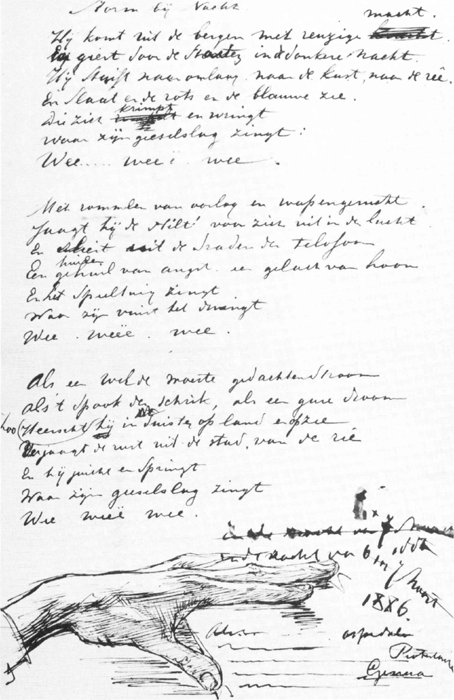 Storm bij Nacht
macht.
Hij komt uit de bergen met reuzige
Hij giert door de straten in d donkere nacht.
Hij stuift naar omlaag naar de kust, naar de reê.
En slaat er de rots en de blauwe zee.
Die ziet krimpt en wringt
Waar zijn geeselslag zingt:
Wee.... weeë wee.
Met rommelen van oorlog en wapengerucht.
Jaagt hij de stilt' voor zich uit in de lucht
En uit de draden der telefoon
Een gehuil van angst een gelach van hoon
En het speeltuig zingt
Waar zijn vuist het dwingt
Wee. weeë. wee.
Als een wilde woeste gedachtenstroom
Als 't spook der schrik, als een gure droom
Zoo heerscht hij in 't duister op land en op zee
Verjaagt de rust uit de stad, van de reê
En hij juicht en springt
Waar zijn geeselslag zingt
Wee weeë wee.
in de nacht van 6 in 7 Maart
1886.
Genova